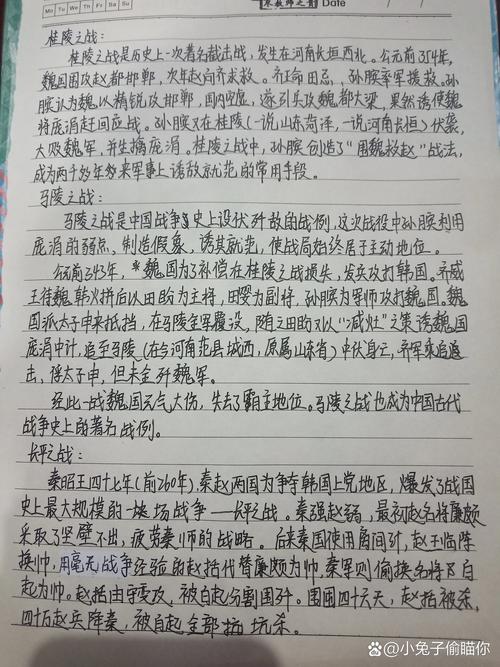 Mo Tu We Th Fr Sa Su
Date
桂陵之战:
桂陵之战是历史上一次著名截击战,发生在河南长垣西北。公元前354年,
魏国围攻赵都邯郸,次年赵向齐求救。齐王命田忌、孙膑率军援救。孙
膑认为魏以精锐攻邯郸,国内空虚,遂引兵攻魏都大梁,果然诱使魏
将庞涓赶回应战。孙膑又在桂陵(一说山东菏泽,一说河南长垣)伏袭,
大败魏军,并生擒庞涓。桂陵之战中,孙膑创造了“围魏救赵”战法,
成为两千多年来军事上诱敌就范的常用手段。
马陵之战:
马陵之战是中国战争史上设伏歼敌的战例,这次战役中孙膑利用
庞涓的弱点,制造假象,诱其就范,使战局始终居于主动地位。
公元前343年,魏国为补偿在桂陵之战损失,发兵攻打韩国。齐威
王待魏、韩火拼后以田盼为主将,田婴为副将,孙膑为军师攻打魏国。魏
国派太子申来抵挡,在马陵全军覆没,随之田盼又以“减灶”之策诱魏国
庞涓中计,追至马陵(在今河南范县城西,原属山东省)中伏身亡,齐军乘追追
击,俘太子申,但未全歼魏军。
经此一战魏国元气大伤,失去了霸主地位。马陵之战也成为中国古代
战争史上的著名战例。
长平之战:
秦昭王四十七年(前260年),秦赵两国为争夺韩国上党地区,爆发了战国
史上最大规模的一场战争——长平之战。秦强赵弱,最初赵名将廉颇
采取了坚壁不出,疲劳秦师的战略。后来秦国使用离间计,赵王临阵
换帅,用毫无战争经验的赵括代替廉颇为帅,秦军则偷换名将白
起为帅。赵括由守变攻,被白起分割围歼。围困四十六天,赵括被杀,
四十万赵兵降秦,被白起全部坑杀。
@小兔子偷瞄你